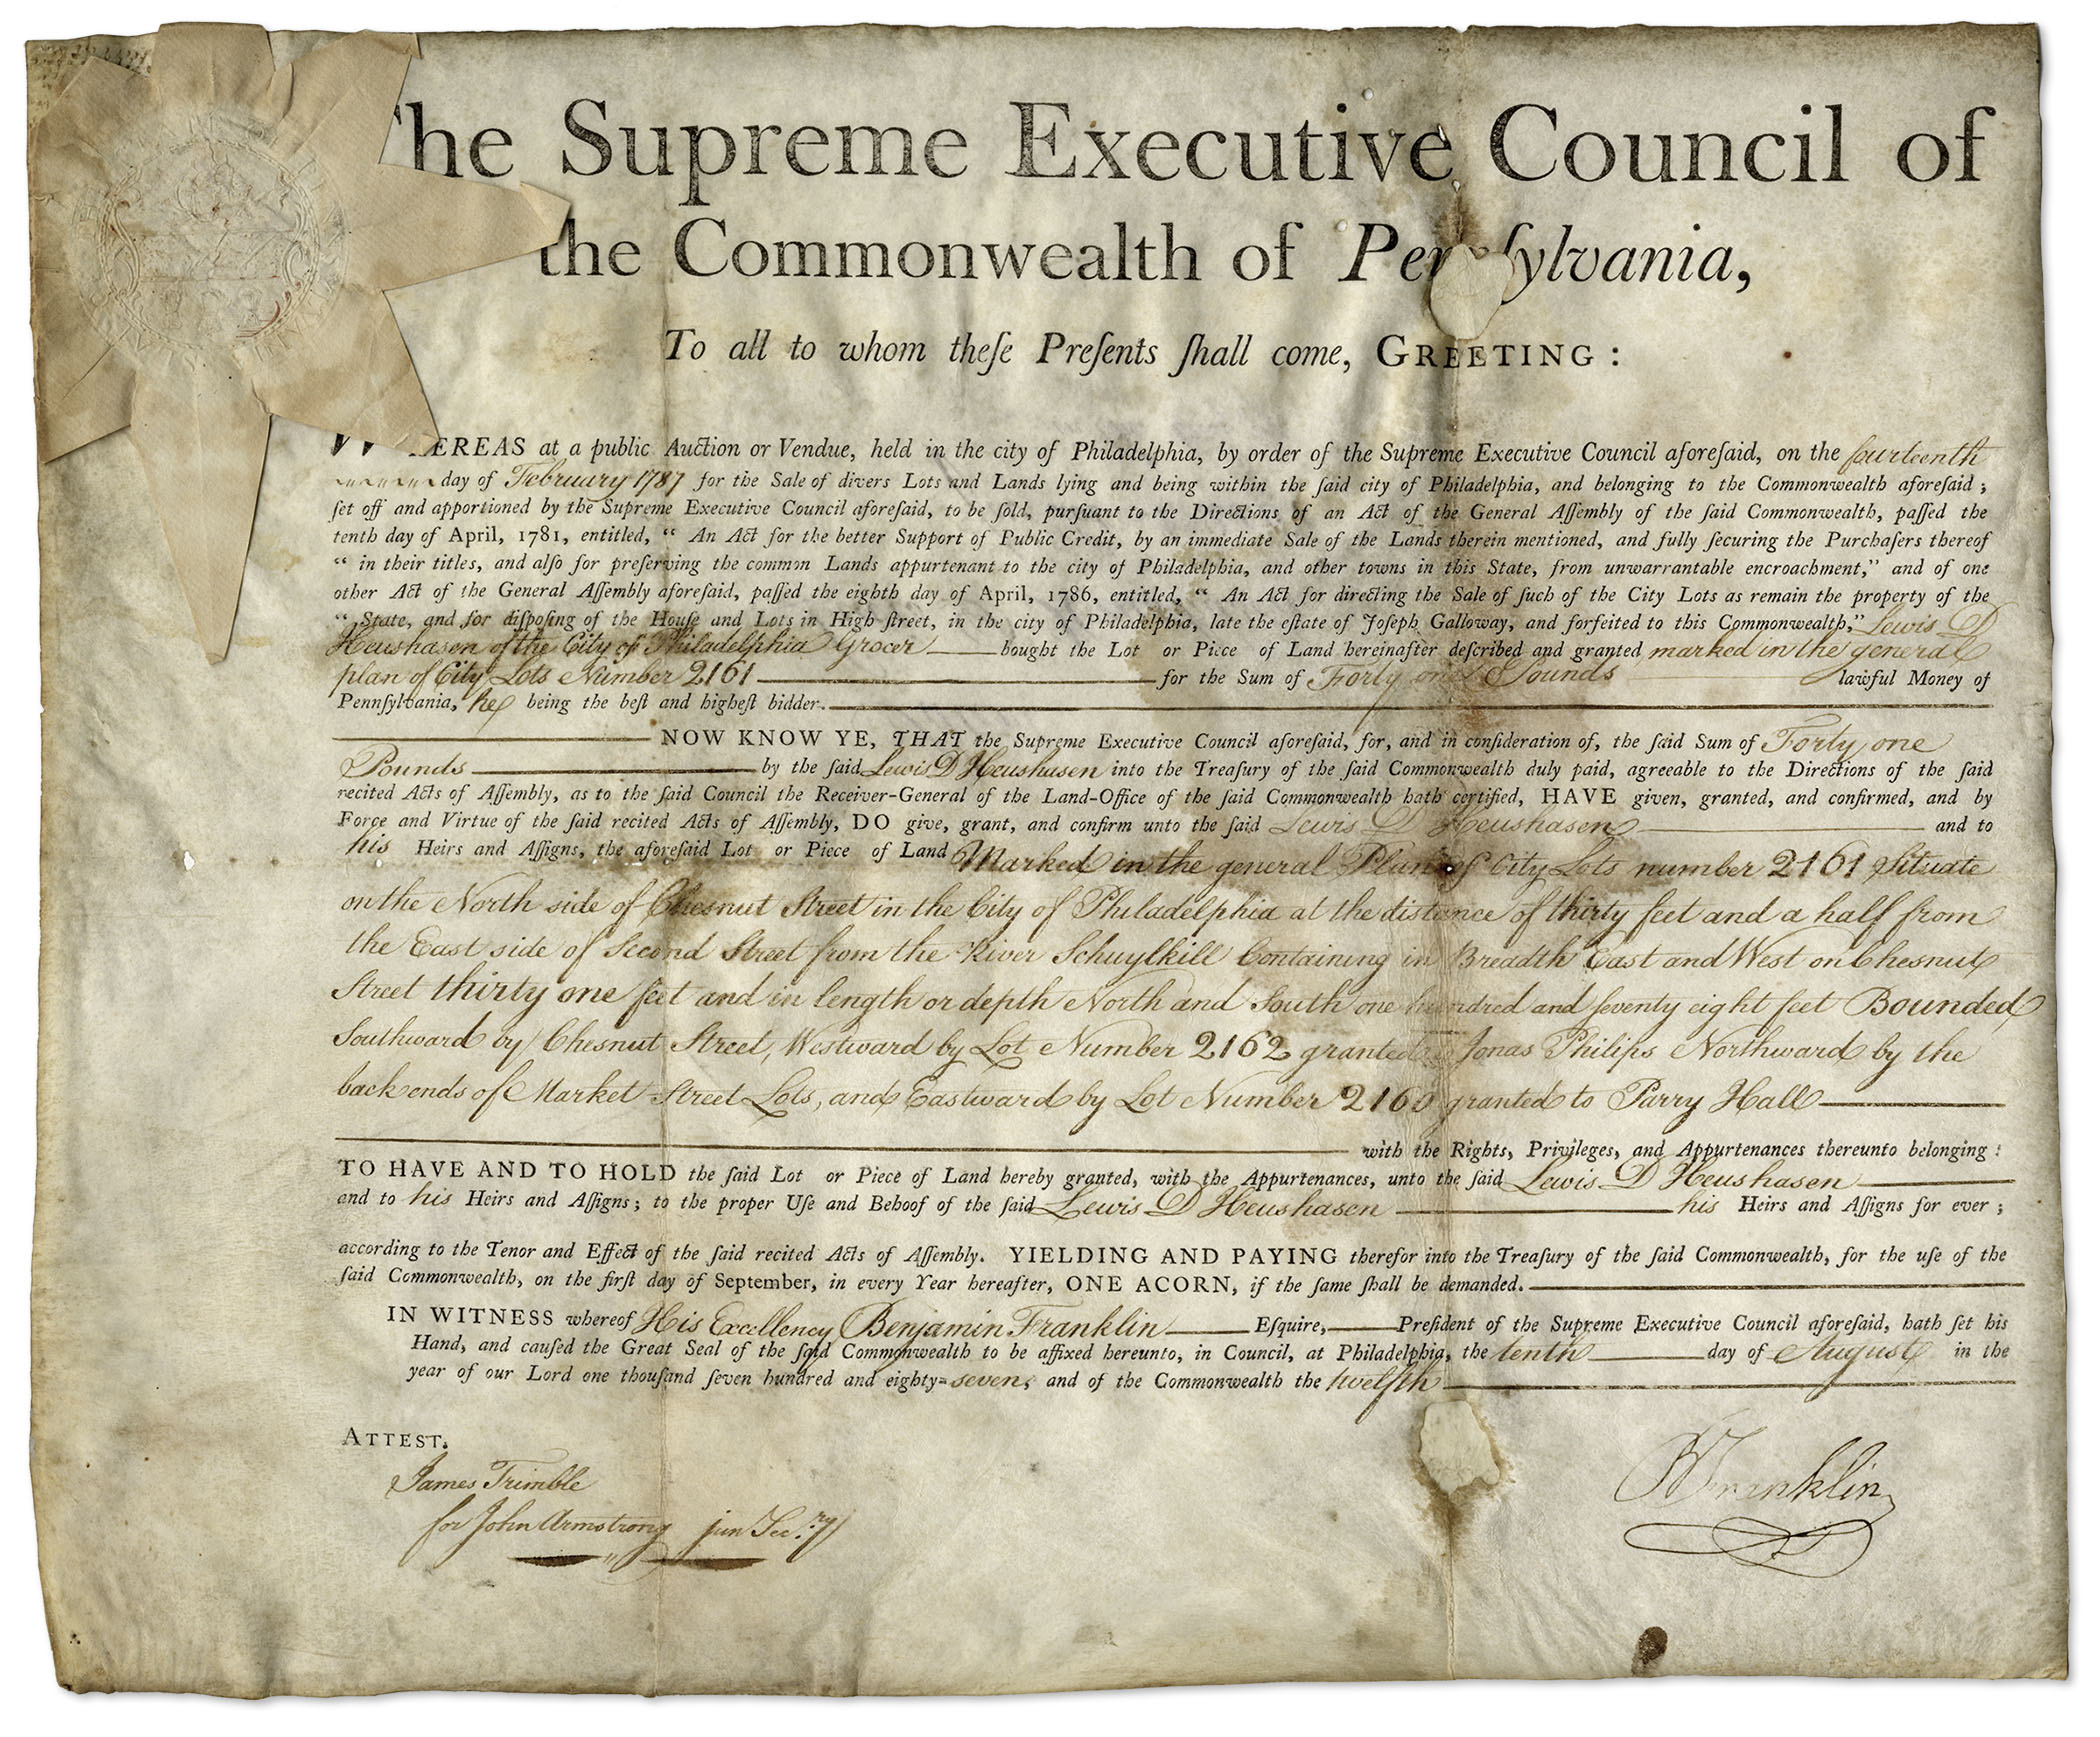 The Supreme Executive Council of
the Commonwealth of Pennſylvania,
To all to whom theſe Preſents ſhall come, GREETING :
WHEREAS at a public Auction or Vendue, held in the city of Philadelphia, by order of the Supreme Executive Council aforeſaid, on the fourteenth
day of February 1787 for the Sale of divers Lots and Lands lying and being within the ſaid city of Philadelphia, and belonging to the Commonwealth aforeſaid ;
ſet off and apportioned by the Supreme Executive Council aforeſaid, to be ſold, purſuant to the Directions of an Act of the General Aſſembly of the ſaid Commonwealth, paſſed the
tenth day of April, 1781, entitled, “ An Act for the better Support of Public Credit, by an immediate Sale of the Lands therein mentioned, and fully ſecuring the Purchaſers thereof
“ in their titles, and alſo for preſerving the common Lands appurtenant to the city of Philadelphia, and other towns in this State, from unwarrantable encroachment,” and of one
other Act of the General Aſſembly aforeſaid, paſſed the eighth day of April, 1786, entitled, “ An Act for directing the Sale of ſuch of the City Lots as remain the property of the
“ State, and for diſpoſing of the Houſe and Lots in High ſtreet, in the city of Philadelphia, late the eſtate of Joſeph Galloway, and forfeited to this Commonwealth,” Lewis D
Heushasen of the City of Philadelphia Grocer bought the Lot or Piece of Land hereinafter deſcribed and granted marked in the general
plan of City Lots Number 2161 for the Sum of Forty one Pounds lawful Money of
Pennſylvania, he being the beſt and higheſt bidder.
NOW KNOW YE, THAT the Supreme Executive Council aforeſaid, for, and in conſideration of, the ſaid Sum of Forty one
Pounds by the ſaid Lewis D Heushasen into the Treaſury of the ſaid Commonwealth duly paid, agreeable to the Directions of the ſaid
recited Acts of Aſſembly, as to the ſaid Council the Receiver-General of the Land-Office of the ſaid Commonwealth hath certified, HAVE given, granted, and confirmed, and by
Force and Virtue of the ſaid recited Acts of Aſſembly, DO give, grant, and confirm unto the ſaid Lewis D Heushasen and to
his Heirs and Aſſigns, the aforeſaid Lot or Piece of Land Marked in the general Plan of City Lots number 2161 Situate
on the North side of Chesnut Street in the City of Philadelphia at the distance of thirty feet and a half from
the East side of Second Street from the River Schuylkill Containing in Breadth East and West on Chesnut
Street thirty one feet and in length or depth North and South one hundred and ſeventy eight feet Bounded
Southward by Chesnut Street, Westward by Lot Number 2162 granted to Jonas Philips Northward by the
back ends of Market Street Lots, and Eastward by Lot Number 2160 granted to Parry Hall
with the Rights, Privileges, and Appurtenances thereunto belonging :
TO HAVE AND TO HOLD the ſaid Lot or Piece of Land hereby granted, with the Appurtenances, unto the ſaid Lewis D Heushasen
and to his Heirs and Aſſigns ; to the proper Uſe and Behoof of the ſaid Lewis D Heushasen his Heirs and Aſſigns for ever ;
according to the Tenor and Effect of the ſaid recited Acts of Aſſembly. YIELDING AND PAYING therefor into the Treaſury of the ſaid Commonwealth, for the uſe of the
ſaid Commonwealth, on the firſt day of September, in every Year hereafter, ONE ACORN, if the ſame ſhall be demanded.
IN WITNESS whereof His Excellency Benjamin Franklin Eſquire, Preſident of the Supreme Executive Council aforeſaid, hath ſet his
Hand, and cauſed the Great Seal of the ſaid Commonwealth to be affixed hereunto, in Council, at Philadelphia, the tenth day of August in the
year of our Lord one thouſand ſeven hundred and eighty-seven, and of the Commonwealth the twelfth
ATTEST.
James Trimble
for John Armstrong jun Sec.ry
B Franklin